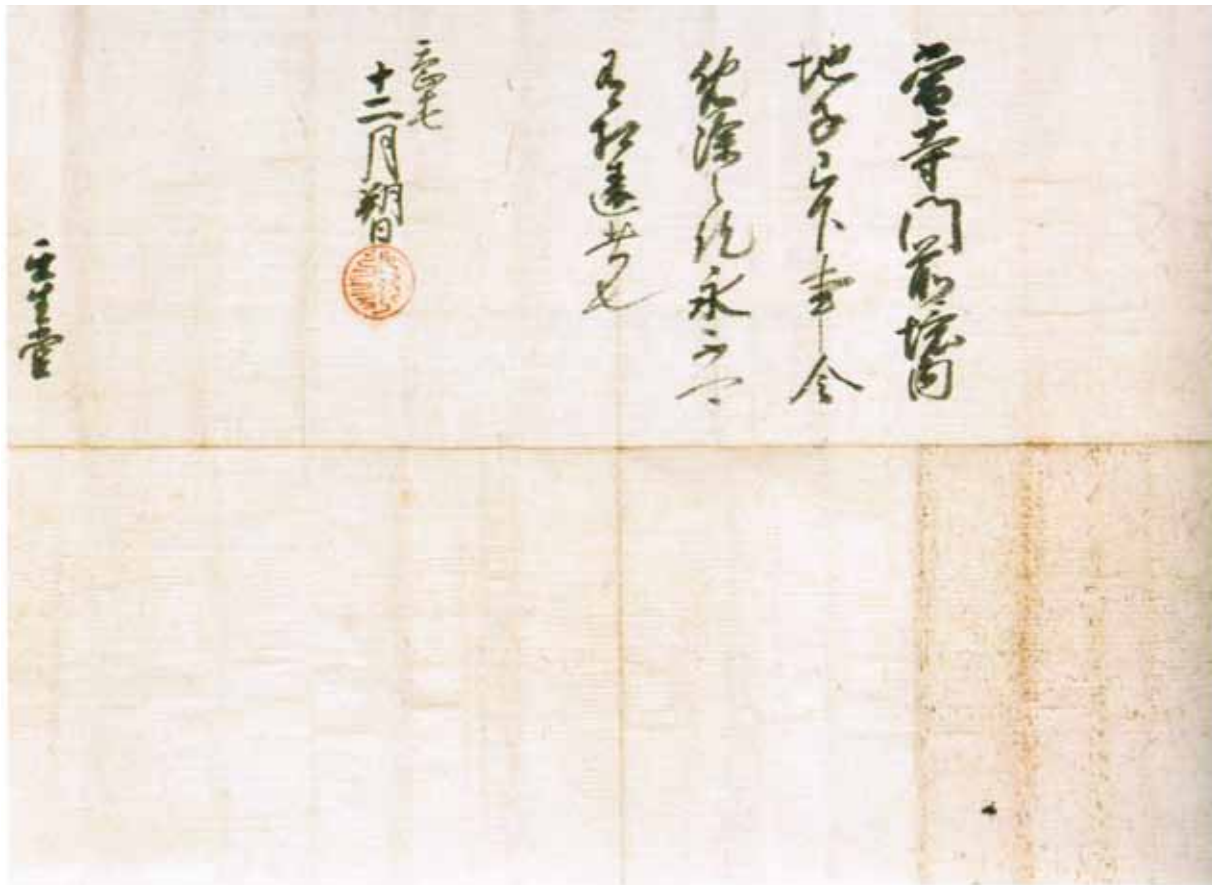 当寺門前境内
地子已下事令
免除之訖永不可
有相違者也
天正十七
十二月朔日
壬生堂